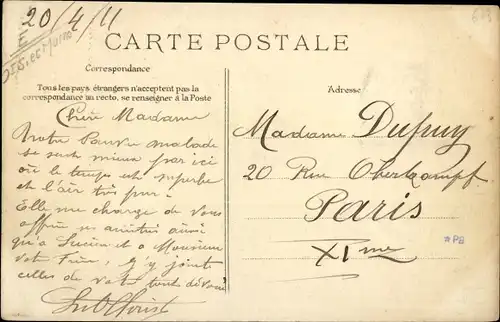 20/4/11
CARTE POSTALE
Correspondance
Tous les pays étrangers n'acceptent pas la
correspondance au recto, se renseigner à la Poste
Adresse
Chère Madame
Notre Pauvre malade
se sent mieux par ici
où le temps est superbe
et l'air très pur.
Elle me charge de vous
offrir ses amitiés ainsi
qu'à Lucien et a Monsieur
votre Frère, j'y joins
celles de votre tout dévoué
Madame Dupuy
20 Rue Oberkampf
Paris
XIme
* PB